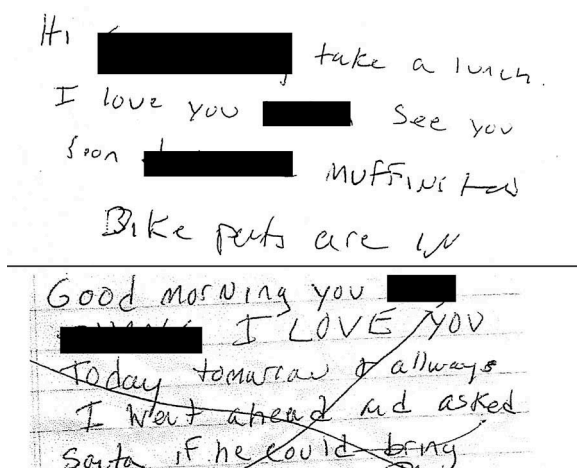 Hi take a lunch.
I love you See you
Soon MUFFINS
Bike parts are IN
Good morning you
I LOVE YOU
Today tomarrow & allways
I Went ahead and asked
Santa if he could bring